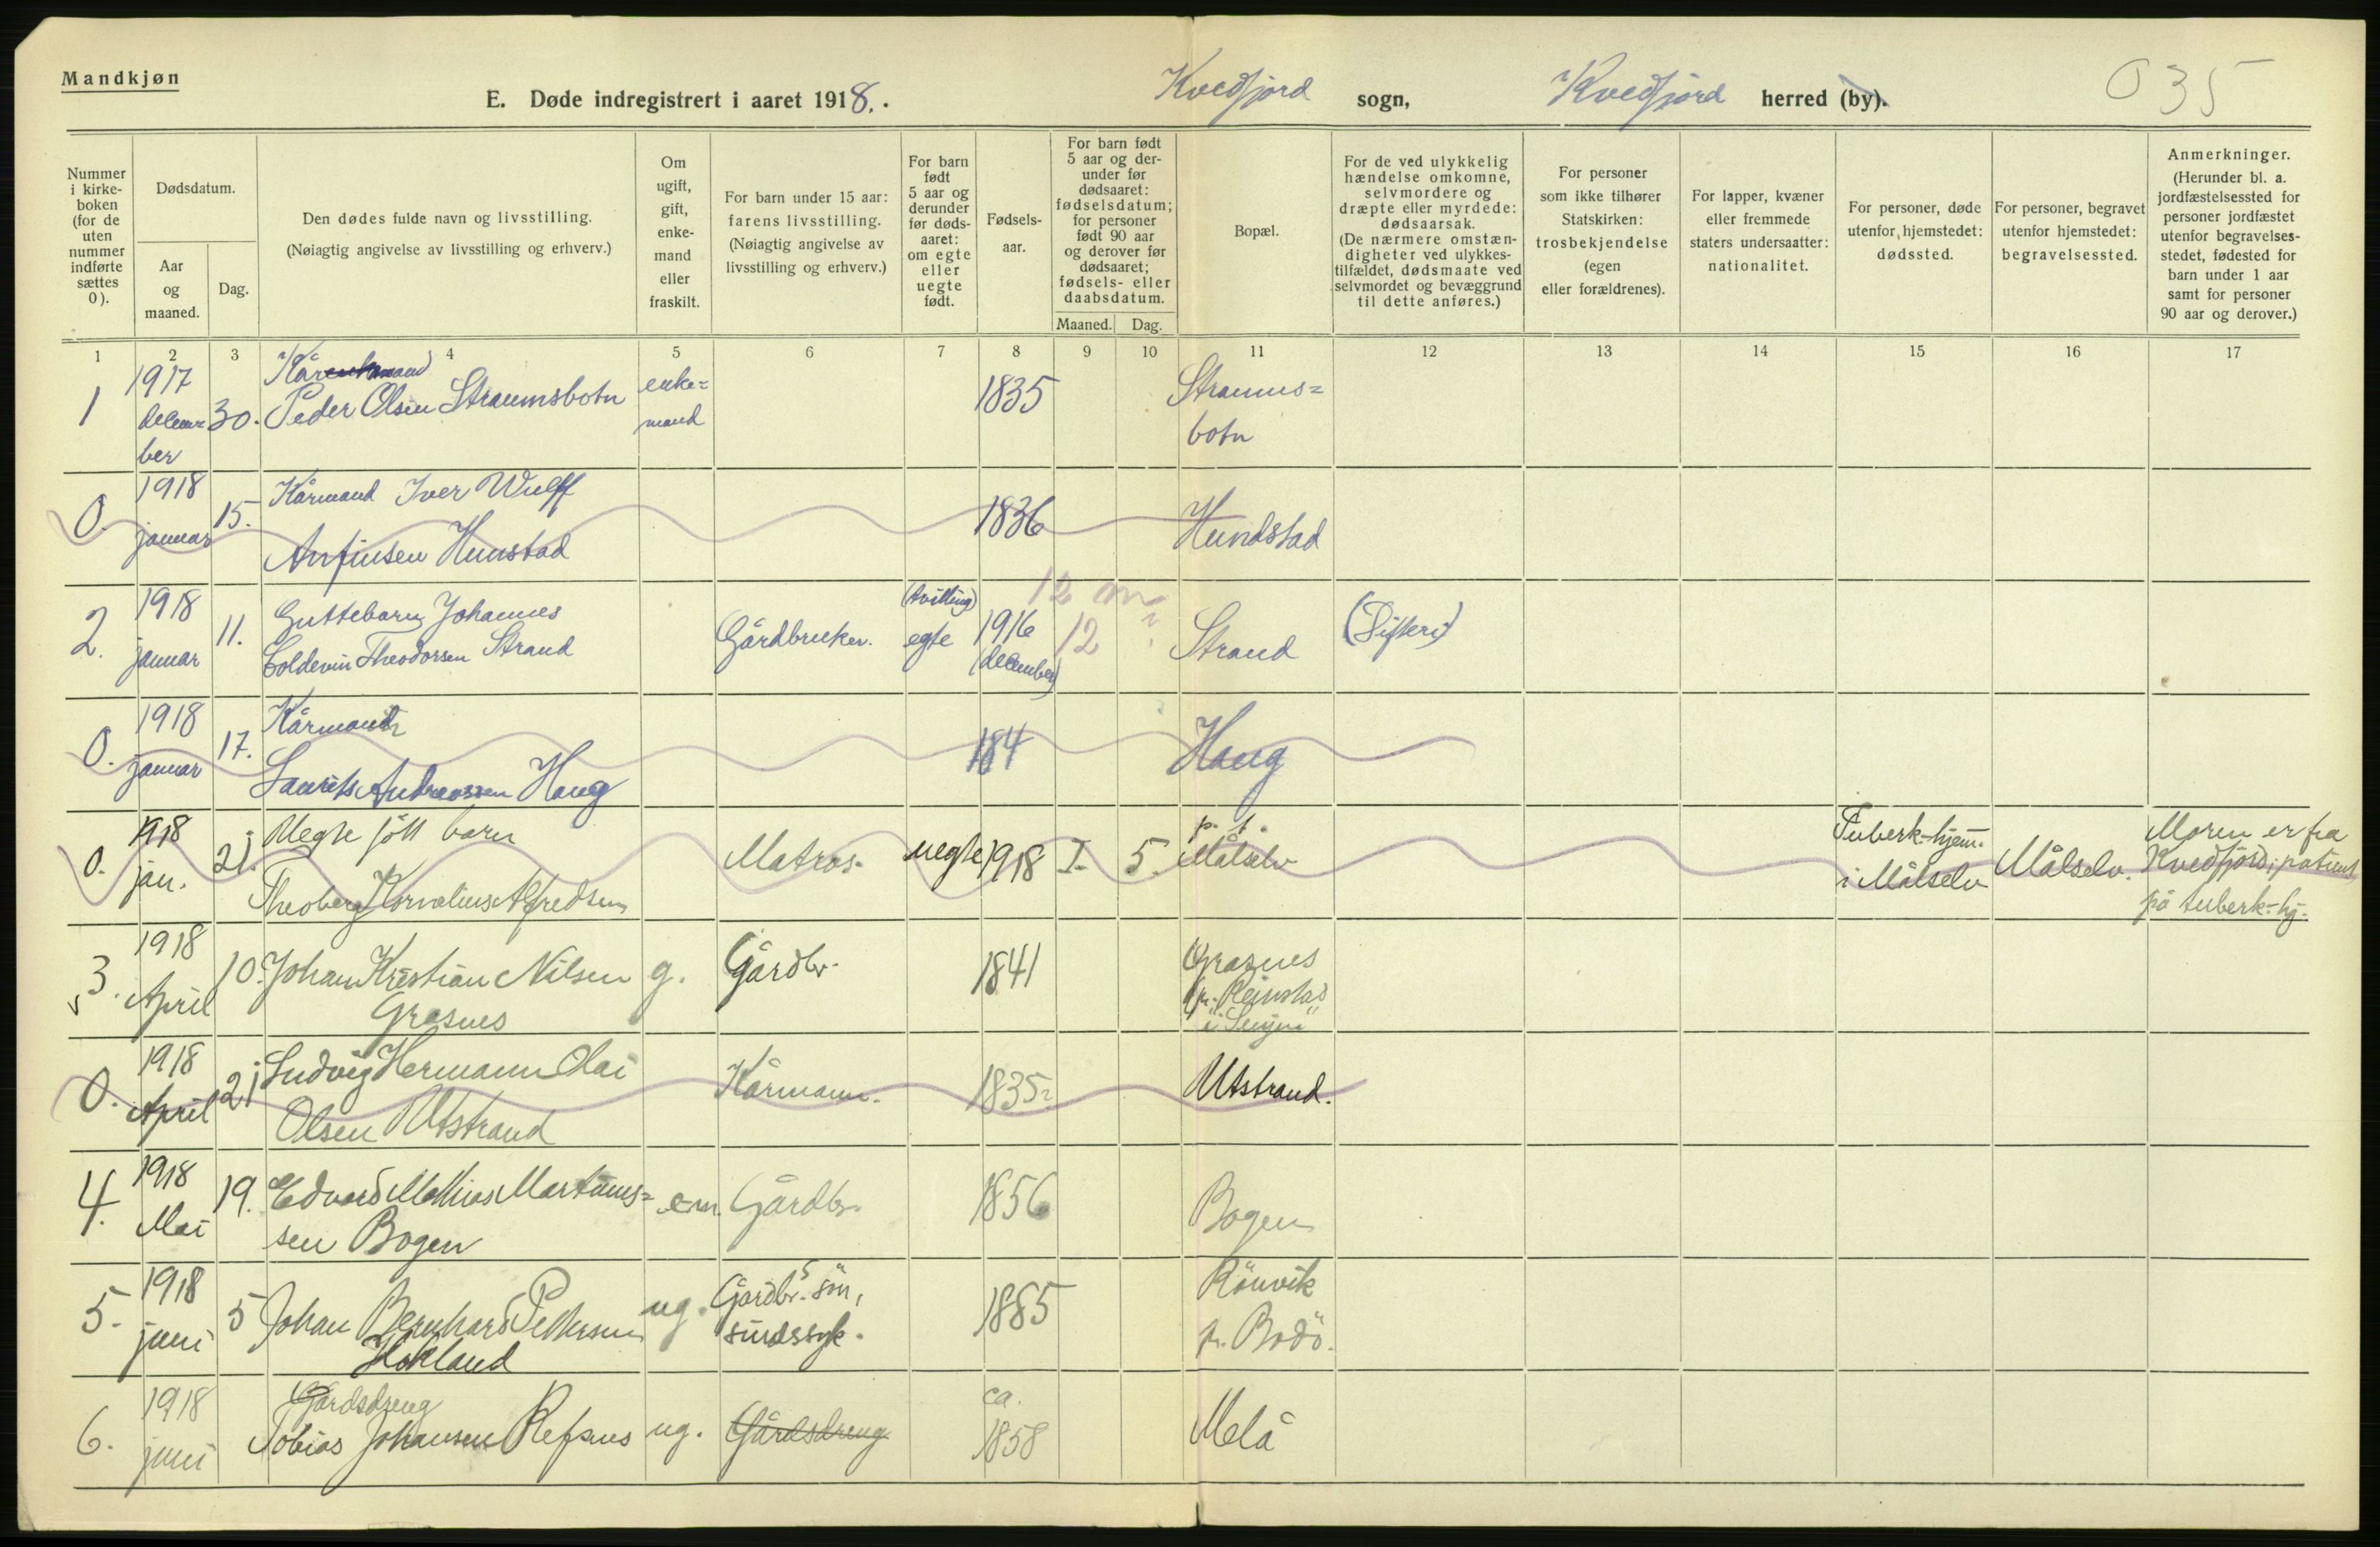 Mandkjøn
E. Døde indregistrert i aaret 1918. Kvedfjord sogn, Kvedfjord herred (by). 035
Nummer i kirke-boken (for de uten nummer indførte sættes 0).
Dødsdatum.
Aar og maaned.
Dag.
Den dødes fulde navn og livsstilling.
(Nøiagtig angivelse av livsstilling og erhverv.)
Om ugift, gift, enke-mand eller fraskilt.
For barn under 15 aar: farens livsstilling.
(Nøiagtig angivelse av livsstilling og erhverv.)
For barn født 5 aar og derunder før døds-aaret: om egte eller uegte født.
Fødsels-aar.
For barn født 5 aar og der-under før dødsaaret: fødselsdatum; for personer født 90 aar og derover før dødsaaret; fødsels- eller daabsdatum.
Maaned. Dag.
Bopæl.
For de ved ulykkelig hændelse omkomne, selvmordere og dræpte eller myrdede: dødsaarsak.
(De nærmere omstæn-digheter ved ulykkes-tilfældet, dødsmaate ved selvmordet og bevæggrund til dette anføres.)
For personer som ikke tilhører Statskirken: trosbekjendelse (egen eller forældrenes).
For lapper, kvæner eller fremmede staters undersaatter: nationalitet.
For personer, døde utenfor hjemstedet: dødssted.
For personer, begravet utenfor hjemstedet: begravelsessted.
Anmerkninger.
(Herunder bl. a. jordfæstelsessted for personer jordfæstet utenfor begravelses-stedet, fødested for barn under 1 aar samt for personer 90 aar og derover.)
1 2 3 4 5 6 7 8 9 10 11 12 13 14 15 16 17
1 1917 decem= ber 30. Kårmand Peder Olsen Straumsbotn enke= mand 1835 Straums= botn
0. 1918 januar 15. Kårmand Iver Wulff Arnfinsen Hunstad 1836 Hundstad
2. 1918 januar 11. Guttebarn Johannes Coldevin Theodorsen Strand Gårdbruker. (tvilling) egte 1916 (december) 12 Strand (Difteri)
0. 1918 januar 17. Kårmand Laurits Andreassen Haug 184 Haug
0. 1918 jan. 21. Uegte født barn Theoberg Kornelius Alfredsen Matros. uegte 1918 I. 5. p. t. Målselv Tuberk.-hjem. i Målselv Målselv. Moren er fra Kvedfjord; patient på tuberk.-hj.
3. 1918 April 10. Johan Kristian Nilsen Grasnes g. Gårdbr. 1841 Grasnes pr. Reinstad "i Senjen"
0. 1918 April 21 Ludvig Hermann Olai Olsen Utstrand Kårmann. 1835 Utstrand.
4. 1918 Mai 19. Edvard Mathias Martinus= sen Bogen em. Gårdbr. 1856 Bogen
5. 1918 juni 5 Johan Bernhard Pettersen Hokland ug. Gårdbr.s sön, sindssyk. 1885 Rönvik pr. Bodö.
6. 1918 juni Gårdsdreng Tobias Johansen Refsnes ug. Gårdsdreng ca. 1858 Melå